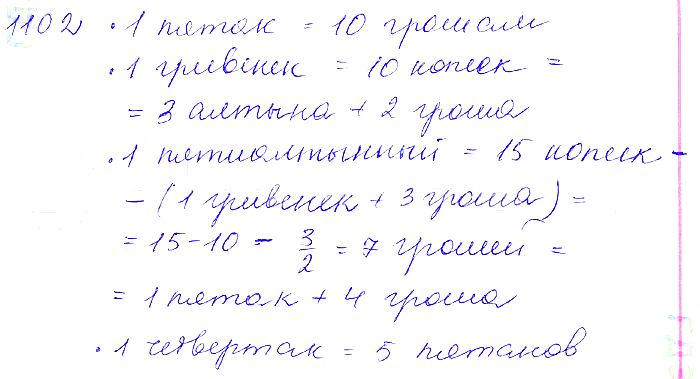 1102 · 1 пятак = 10 грошам
· 1 гривенек = 10 копеек =
= 3 алтына + 2 гроша
· 1 пятиалтынный = 15 копеек -
- (1 гривенек + 3 гроша) =
= 15 - 10 - 3/2 = 7 грошей =
= 1 пятак + 4 гроша
· 1 четвертак = 5 пятаков